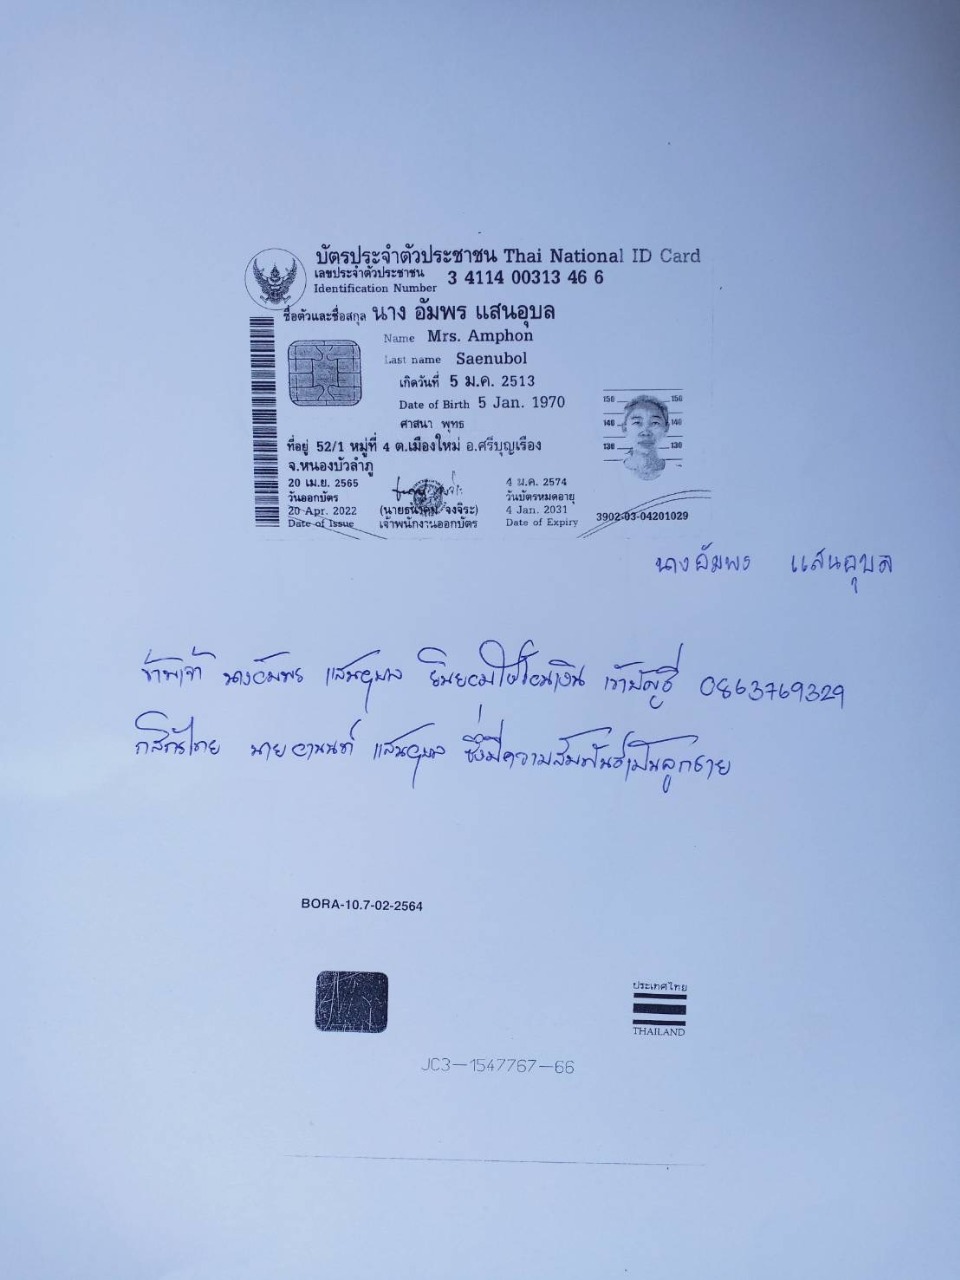 บัตรประจำตัวประชาชน Thai National ID Card
เลขประจำตัวประชาชน
Identification Number 3 4114 00313 46 6
ชื่อตัวและชื่อสกุล นาง อัมพร แสนอุบล
Name Mrs. Amphon
Last name Saenubol
เกิดวันที่ 5 ม.ค. 2513
Date of Birth 5 Jan. 1970
ศาสนา พุทธ
ที่อยู่ 52/1 หมู่ที่ 4 ต.เมืองใหม่ อ.ศรีบุญเรือง
จ.หนองบัวลำภู
150 150
140 140
130 130
20 เม.ย. 2565
วันออกบัตร
20 Apr. 2022
Date of Issue
เจ้าพนักงานออกบัตร
4 ม.ค. 2574
วันบัตรหมดอายุ
4 Jan. 2031
Date of Expiry
3902-03-04201029
นางอัมพร แสนอุบล
ข้าพเจ้า นางอัมพร แสนอุบล ยินยอมให้โอนเงิน เข้าบัญชี 0863769329
กสิกรไทย นายอานนท์ แสนอุบล ซึ่งมีความสัมพันธ์เป็นลูกชาย
BORA-10.7-02-2564
ประเทศไทย
THAILAND
JC3-1547767-66